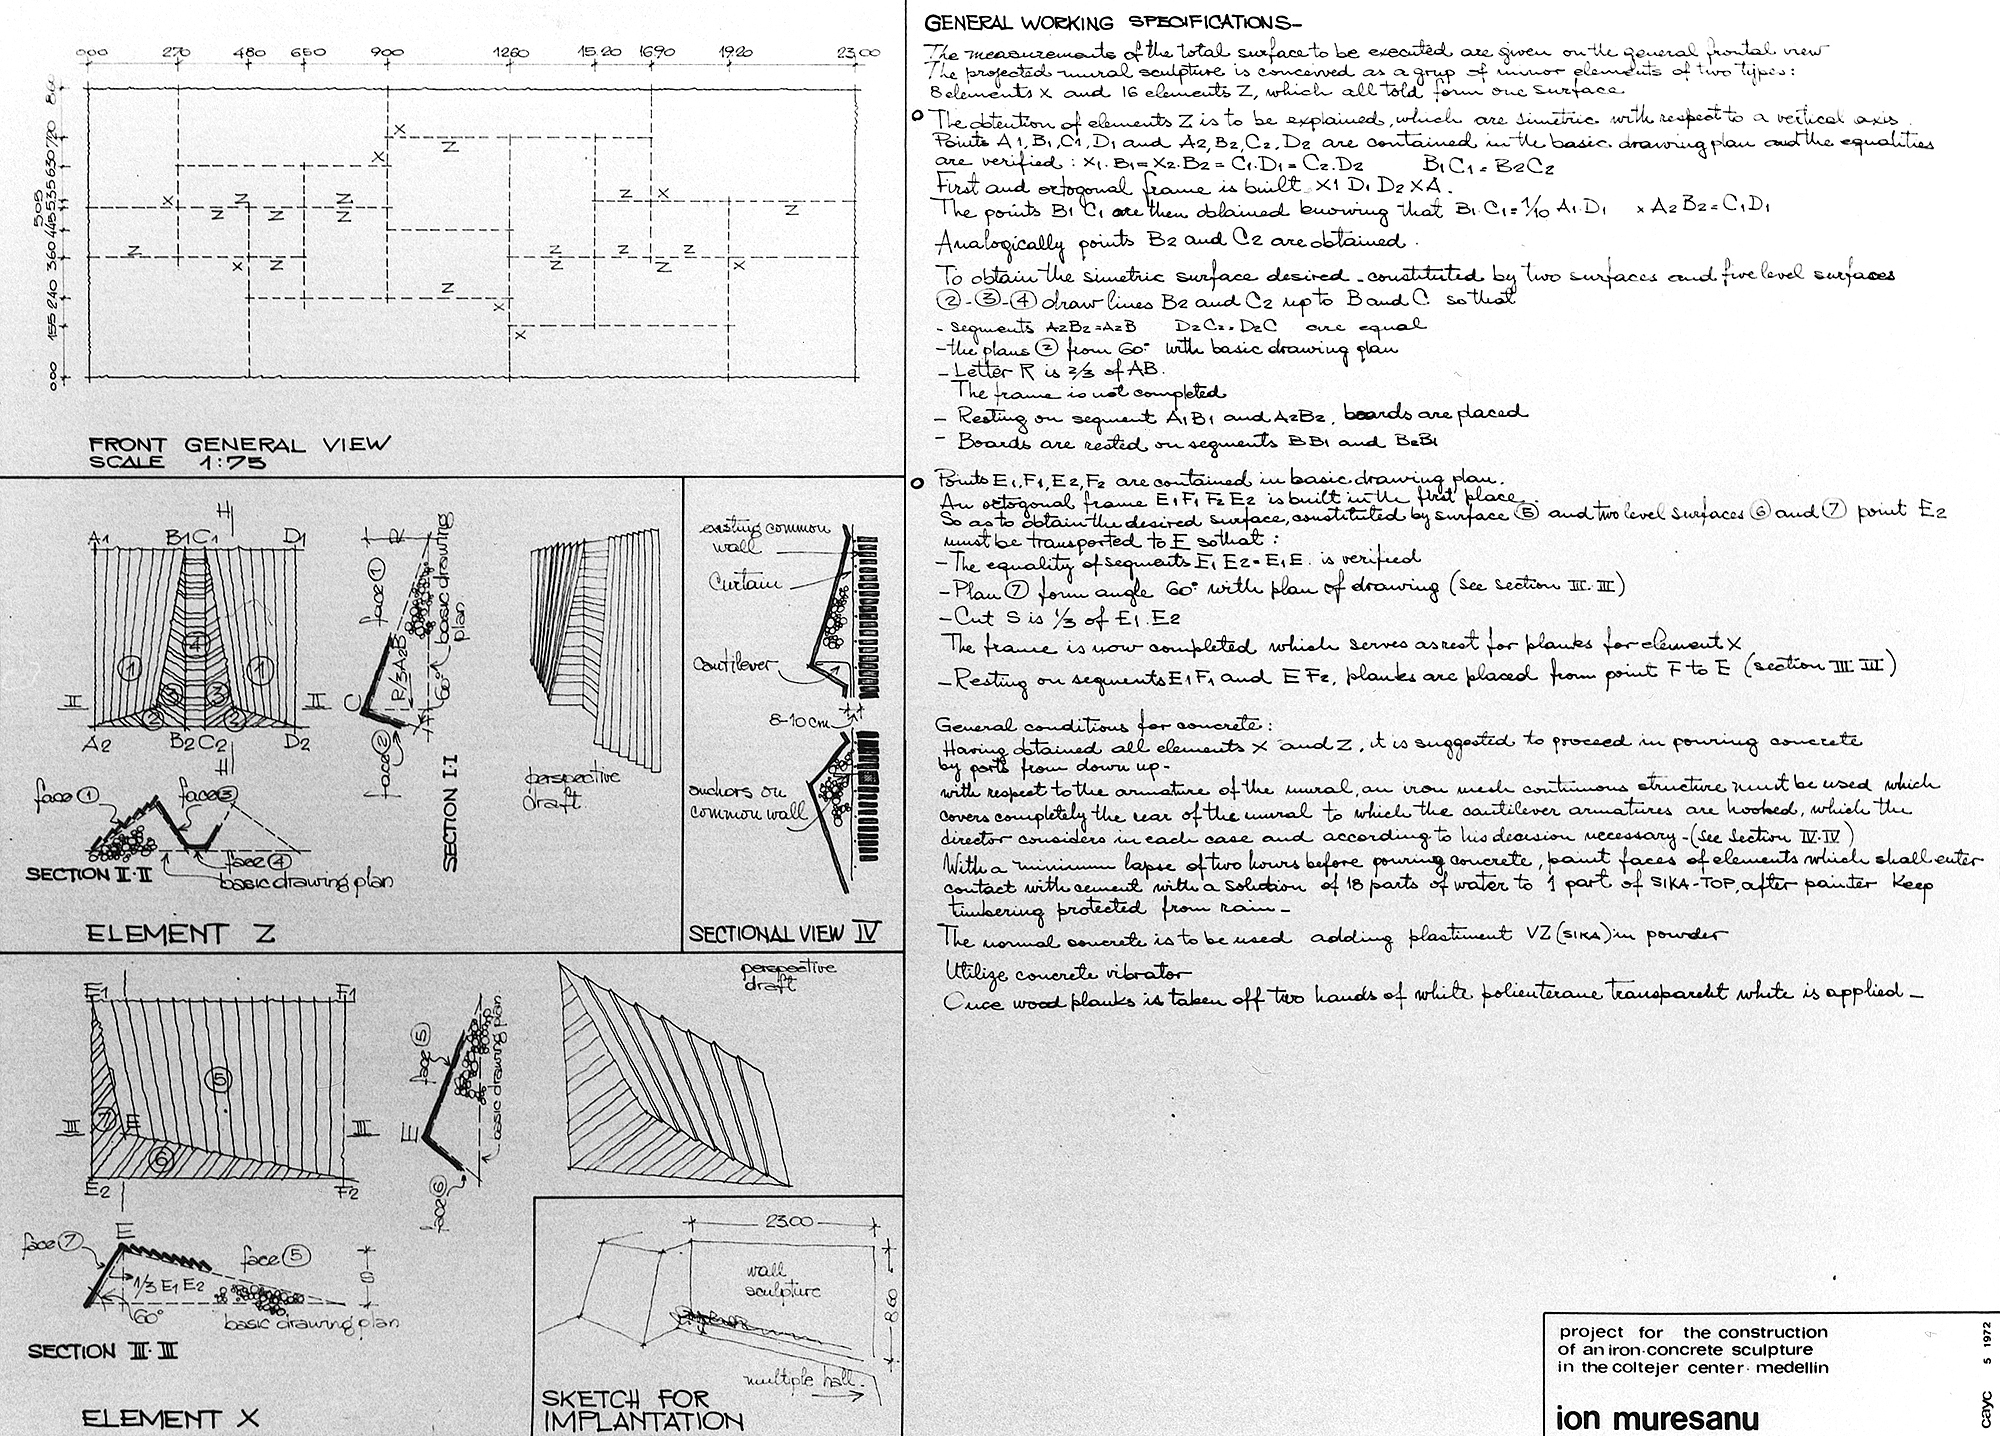 0.00 270 480 650 900 1260 15.20 1690 1920 23.00
8.60
720
630
535
505
445
360
240
155
0.00
X
Z
X
Z X
X Z Z
Z Z Z Z
Z Z Z Z
X Z Z Z X
Z
X
X
FRONT GENERAL VIEW
SCALE 1:75
A1 B1 C1 D1
H
1 4 1
3 3
2 2
II II
A2 B2 C2 D2
H
face 1
R
basic drawing
plan
R/3A2B
60°
C
face 2
SECTION I-I
perspective
draft
face 1 face 3
face 4
basic drawing plan
SECTION II-II
ELEMENT Z
existing common
wall
curtain
cantilever
1
8-10cm
anchors on
common wall
SECTIONAL VIEW IV
E1 F1
5
7 E
6
III III
E2 F2
face 5
E
basic drawing plan
face 6
perspective
draft
E
face 7
face 5
1/3 E1 E2
S
60°
basic drawing plan
SECTION III-III
ELEMENT X
23.00
wall
sculpture
8.60
multiple hall.
SKETCH FOR
IMPLANTATION
GENERAL WORKING SPECIFICATIONS-
The measurements of the total surface to be executed are given on the general frontal view
The projected mural sculpture is conceived as a grup of minor elements of two types:
8 elements X and 16 elements Z, which all told form one surface
The obtention of elements Z is to be explained, which are simetric with respect to a vertical axis.
Points A1, B1, C1, D1 and A2, B2, C2, D2 are contained in the basic drawing plan and the equalities
are verified : X1.B1=X2.B2=C1.D1=C2.D2 B1C1=B2C2
First and ortogonal frame is built X1 D1 D2 XA.
The points B1 C1 are then obtained knowing that B1.C1=1/10 A1.D1 x A2B2=C1D1
Analogically points B2 and C2 are obtained.
To obtain the simetric surface desired - constituted by two surfaces and five level surfaces
2-3-4 draw lines B2 and C2 up to B and C so that
- segments A2B2=A2B D2C2=D2C are equal
- the plans 2 from 60° with basic drawing plan
- Letter R is 2/3 of AB.
The frame is not completed
- Resting on segment A1B1 and A2B2, boards are placed
- Boards are rested on segments BB1 and B2B1
Points E1, F1, E2, F2 are contained in basic drawing plan.
An octogonal frame E1 F1 F2 E2 is built in the first place.
So as to obtain the desired surface, constituted by surface 5 and two level surfaces 6 and 7 point E2
must be transported to E so that :
- The equality of segments E1 E2=E1E. is verified
- Plan 7 form angle 60° with plan of drawing (see section III.III)
- Cut S is 1/3 of E1.E2
The frame is now completed which serves as rest for planks for element X
- Resting on segments E1F1 and EF2, planks are placed from point F to E (section III III)
General conditions for concrete :
Having obtained all elements X and Z, it is suggested to proceed in pouring concrete
by parts from down up-
with respect to the armature of the mural, an iron mesh continuous structure must be used which
covers completely the rear of the mural to which the cantilever armatures are hooked, which the
director considers in each case and according to his decision necessary-(see Section IV.IV)
With a minimum lapse of two hours before pouring concrete, paint faces of elements which shall enter
contact with cement with a solution of 18 parts of water to 1 part of SIKA-TOP, after painter keep
timbering protected from rain-
The normal concrete is to be used adding plastiment VZ(SIKA) in powder
Utilize concrete vibrator
Once wood planks is taken off two hands of white polienterane transparent white is applied-
project for the construction
of an iron-concrete sculpture
in the coltejer center- medellin
ion muresanu
cayc 5 1972